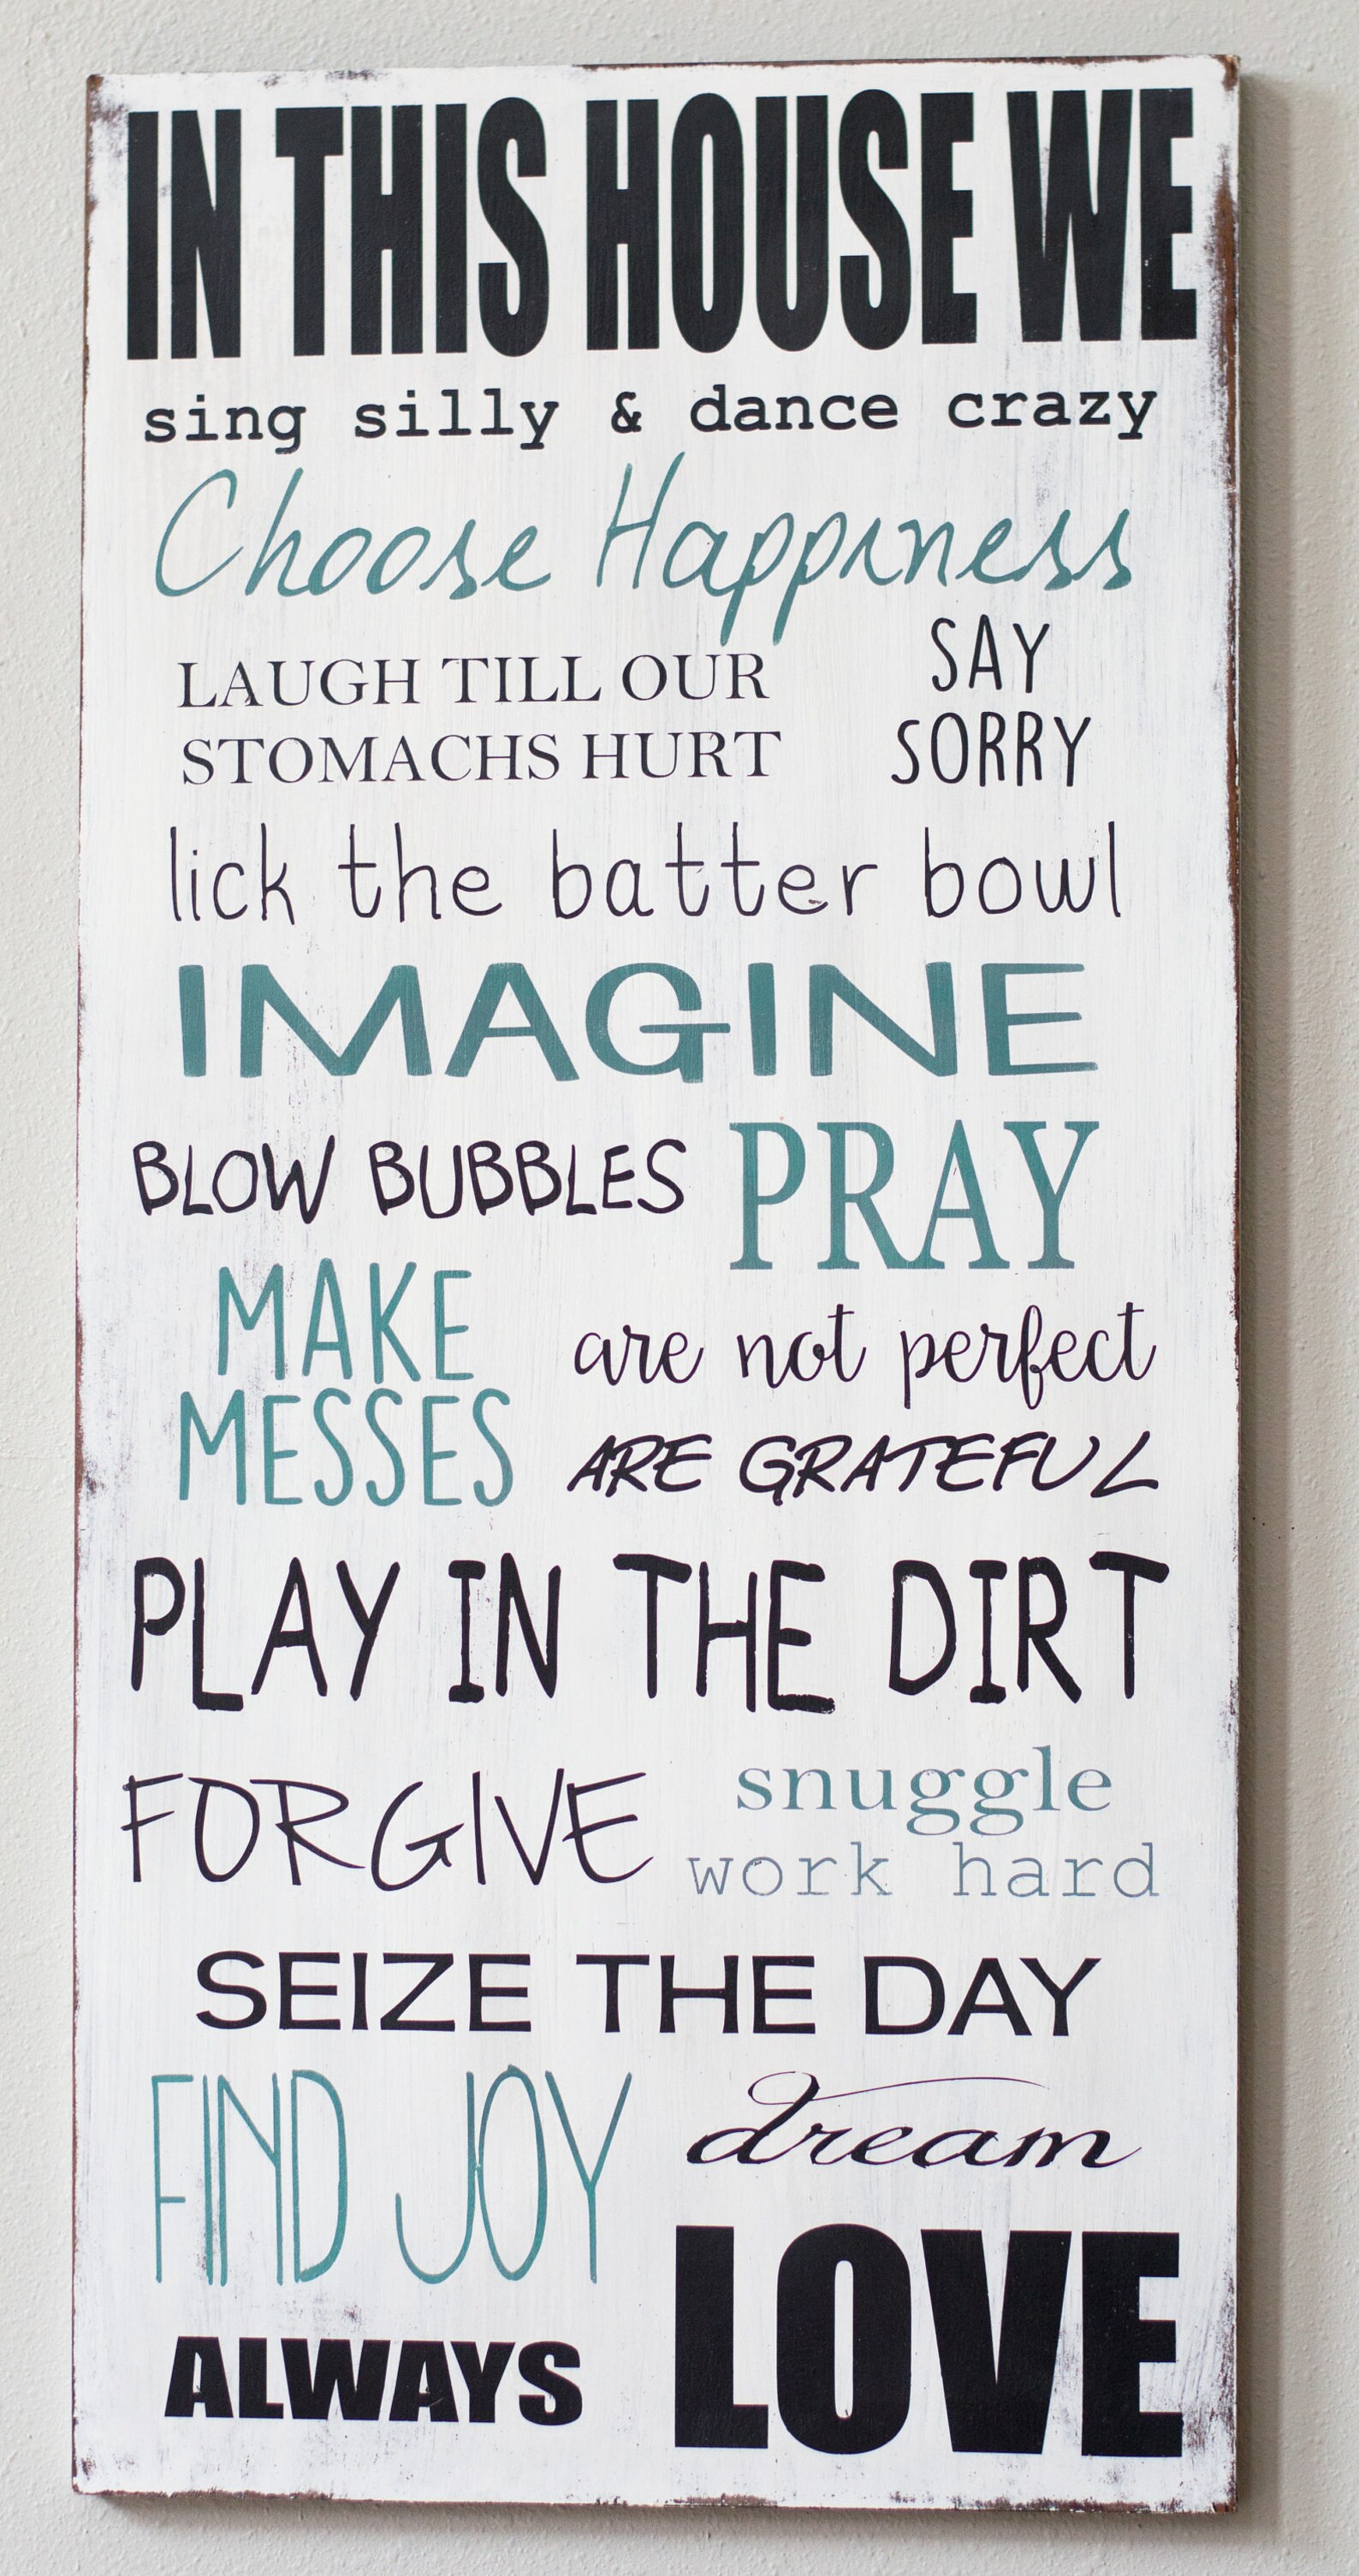 IN THIS HOUSE WE
sing silly & dance crazy
Choose Happiness
LAUGH TILL OUR
STOMACHS HURT
SAY
SORRY
lick the batter bowl
IMAGINE
BLOW BUBBLES
PRAY
MAKE
MESSES
are not perfect
ARE GRATEFUL
PLAY IN THE DIRT
FORGIVE
snuggle
work hard
SEIZE THE DAY
FIND JOY
dream
ALWAYS
LOVE